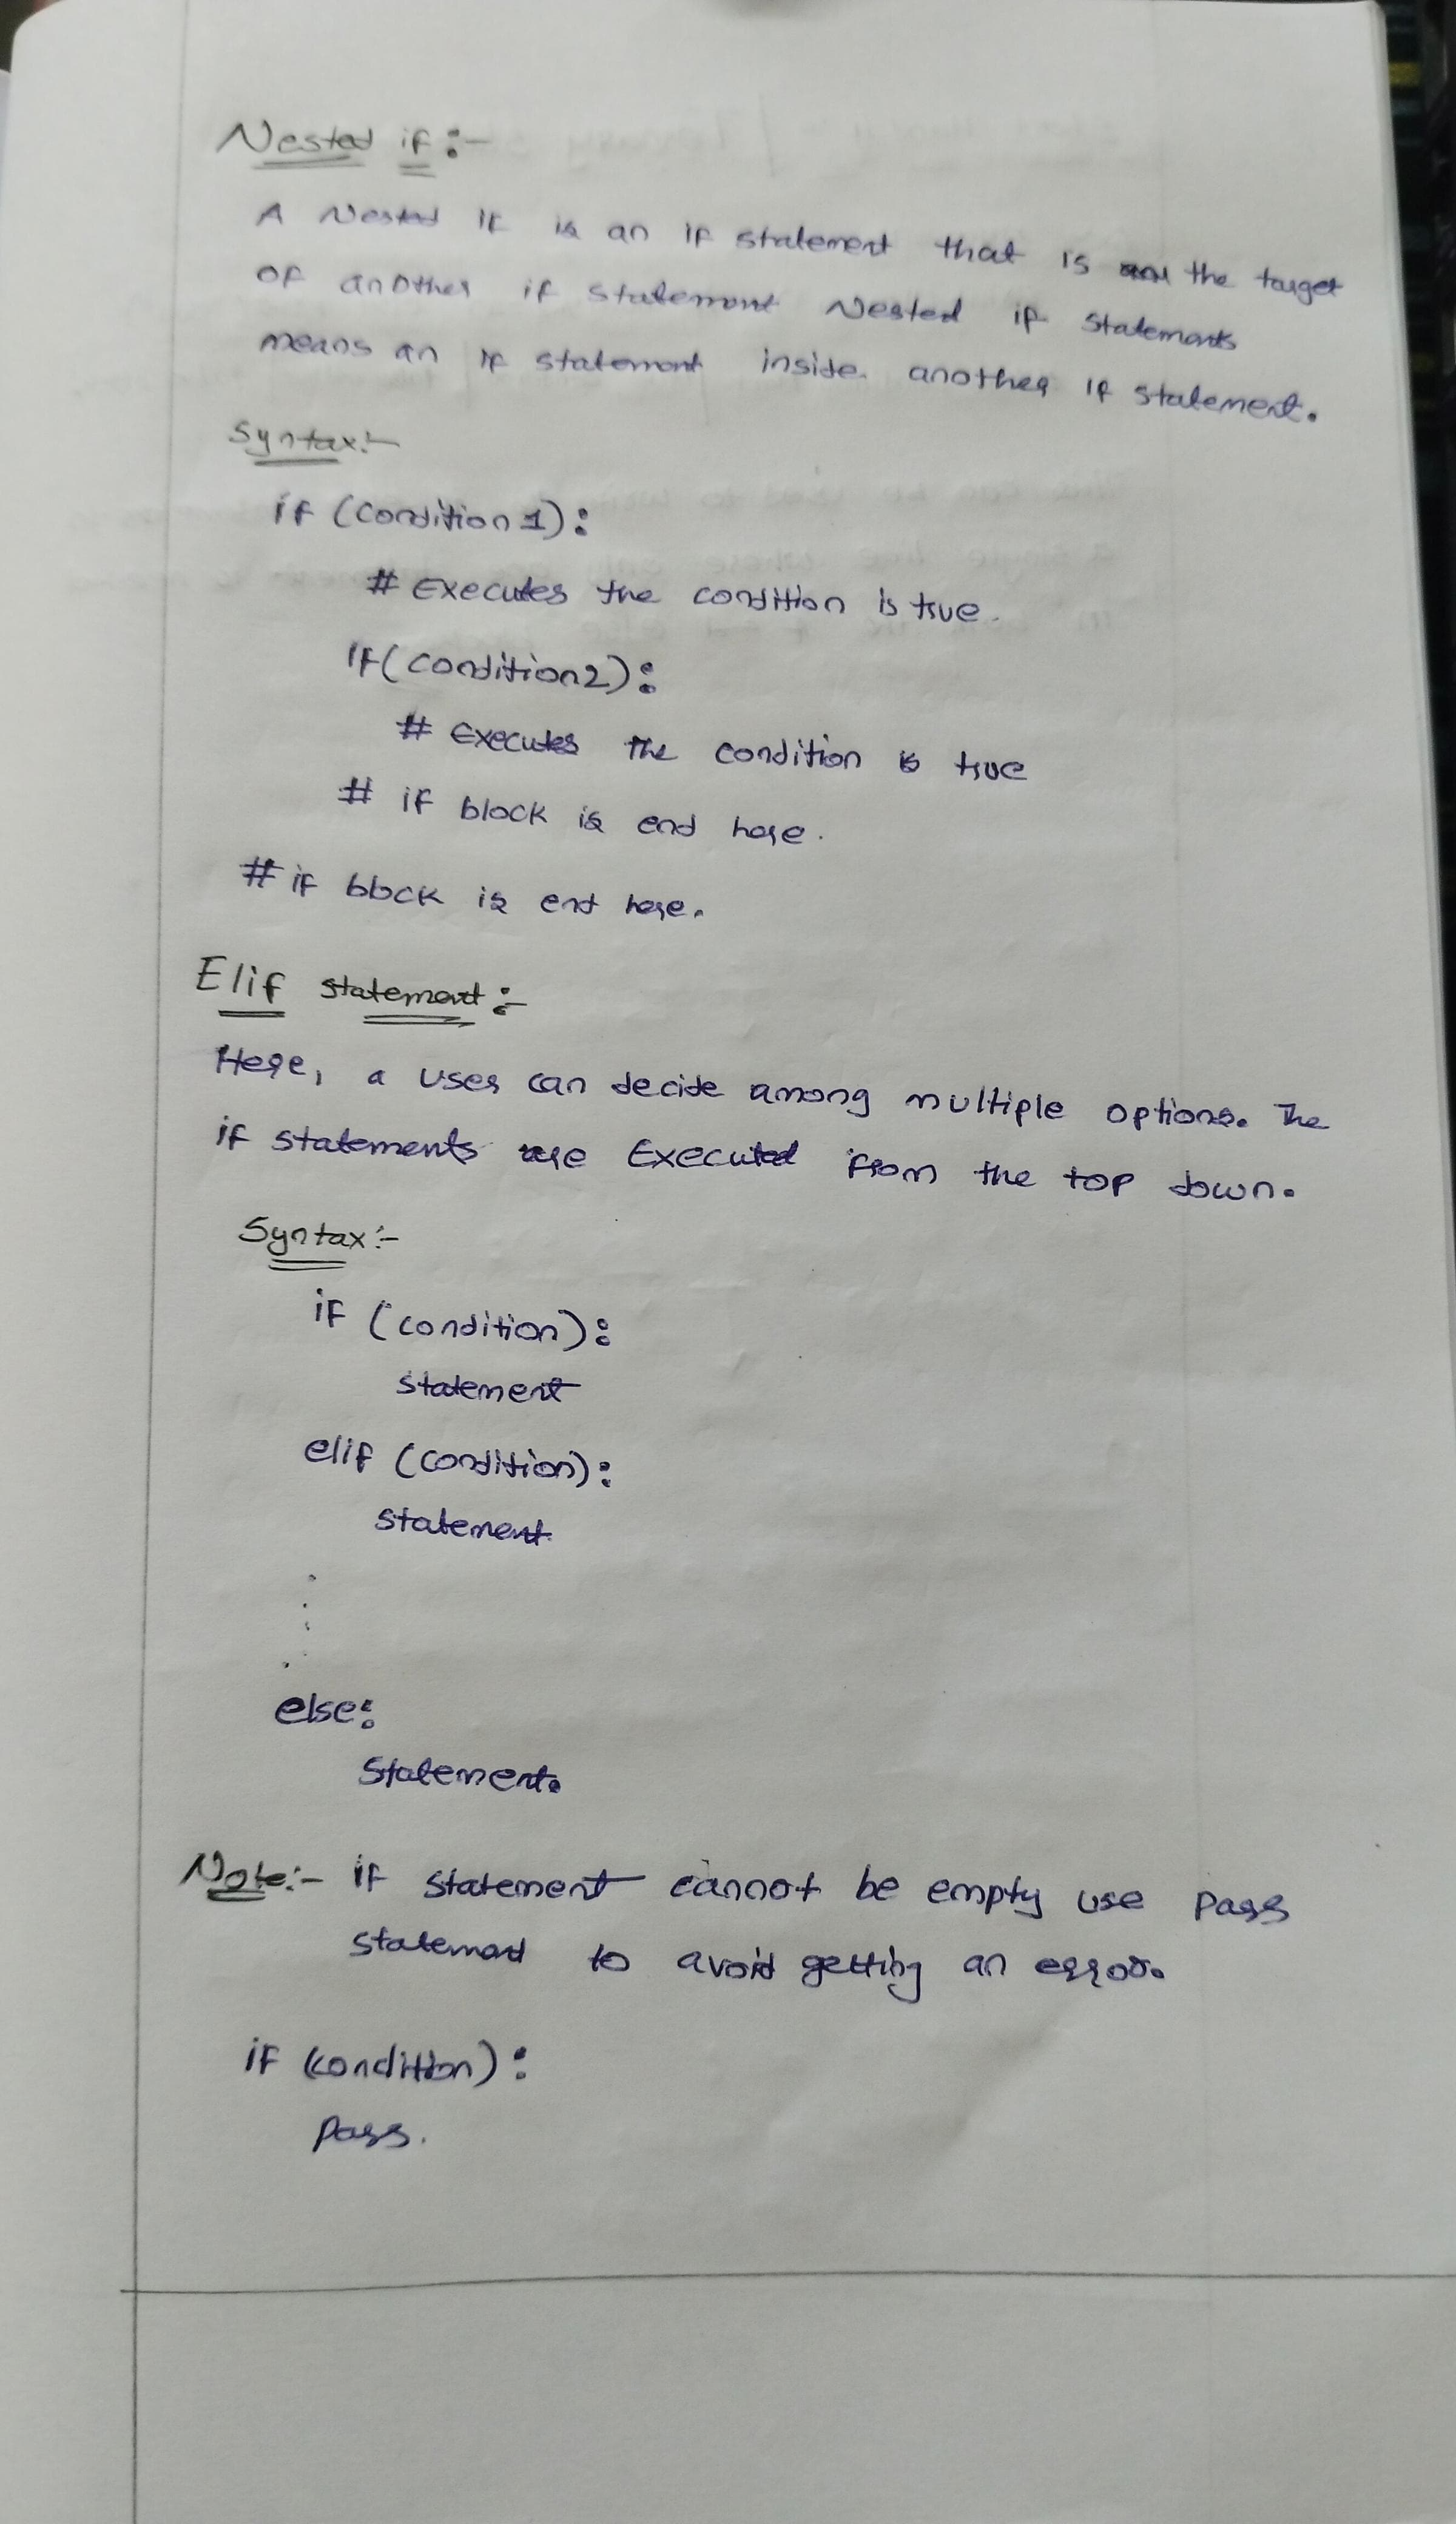 Nested if :-
A Nested if is an if statement that is the target
of another if statement Nested if statements
means an if statement inside another if statement.
Syntax:-
if (condition 1):
# Executes the condition is true.
if (condition2):
# Executes the condition is true
# if block is end here.
# if block is end here.
Elif statement :-
Here, a user can decide among multiple options. The
if statements are Executed from the top down.
Syntax:-
if (condition):
statement
elif (condition):
statement
.
.
.
.
else:
Statement.
Note:- if statement cannot be empty use pass
statement to avoid getting an error.
if (condition):
pass.